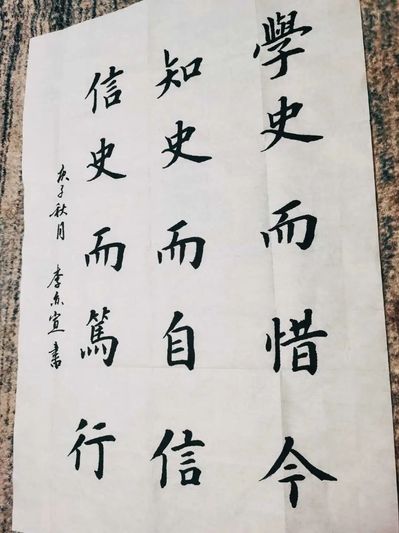 學史而惜今
知史而自信
信史而篤行
庚子秋月 李亦宣書